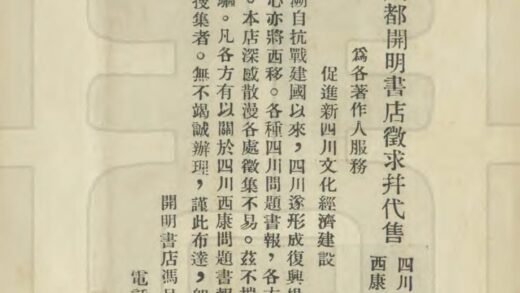 都開明書店徵求幷代售
四川
西康
為各著作人服務
促進新四川文化經濟建設
自抗戰建國以來，四川遂形成復興
心亦將西移。各種四川問題書報，各
。本店深感散漫各處徵集不易。茲不
。凡各方有以關於四川西康問題書報
集者。無不竭誠辦理，謹此布達，
開明書店馮
電話